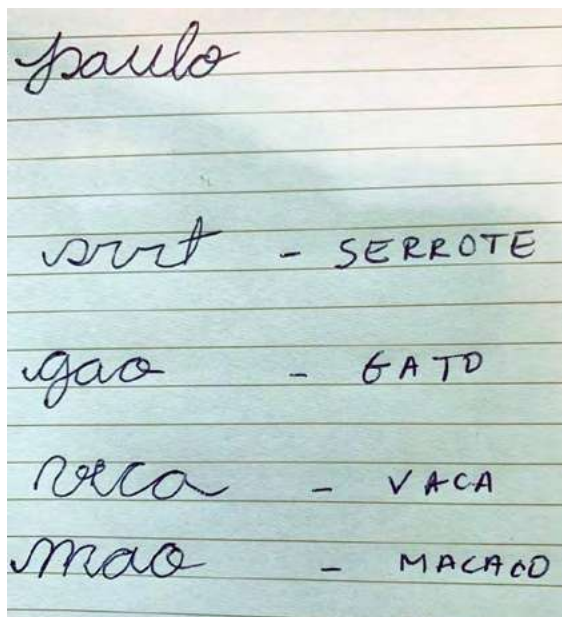 paulo
srrt - SERROTE
gao - GATO
veca - VACA
mao - MACACO